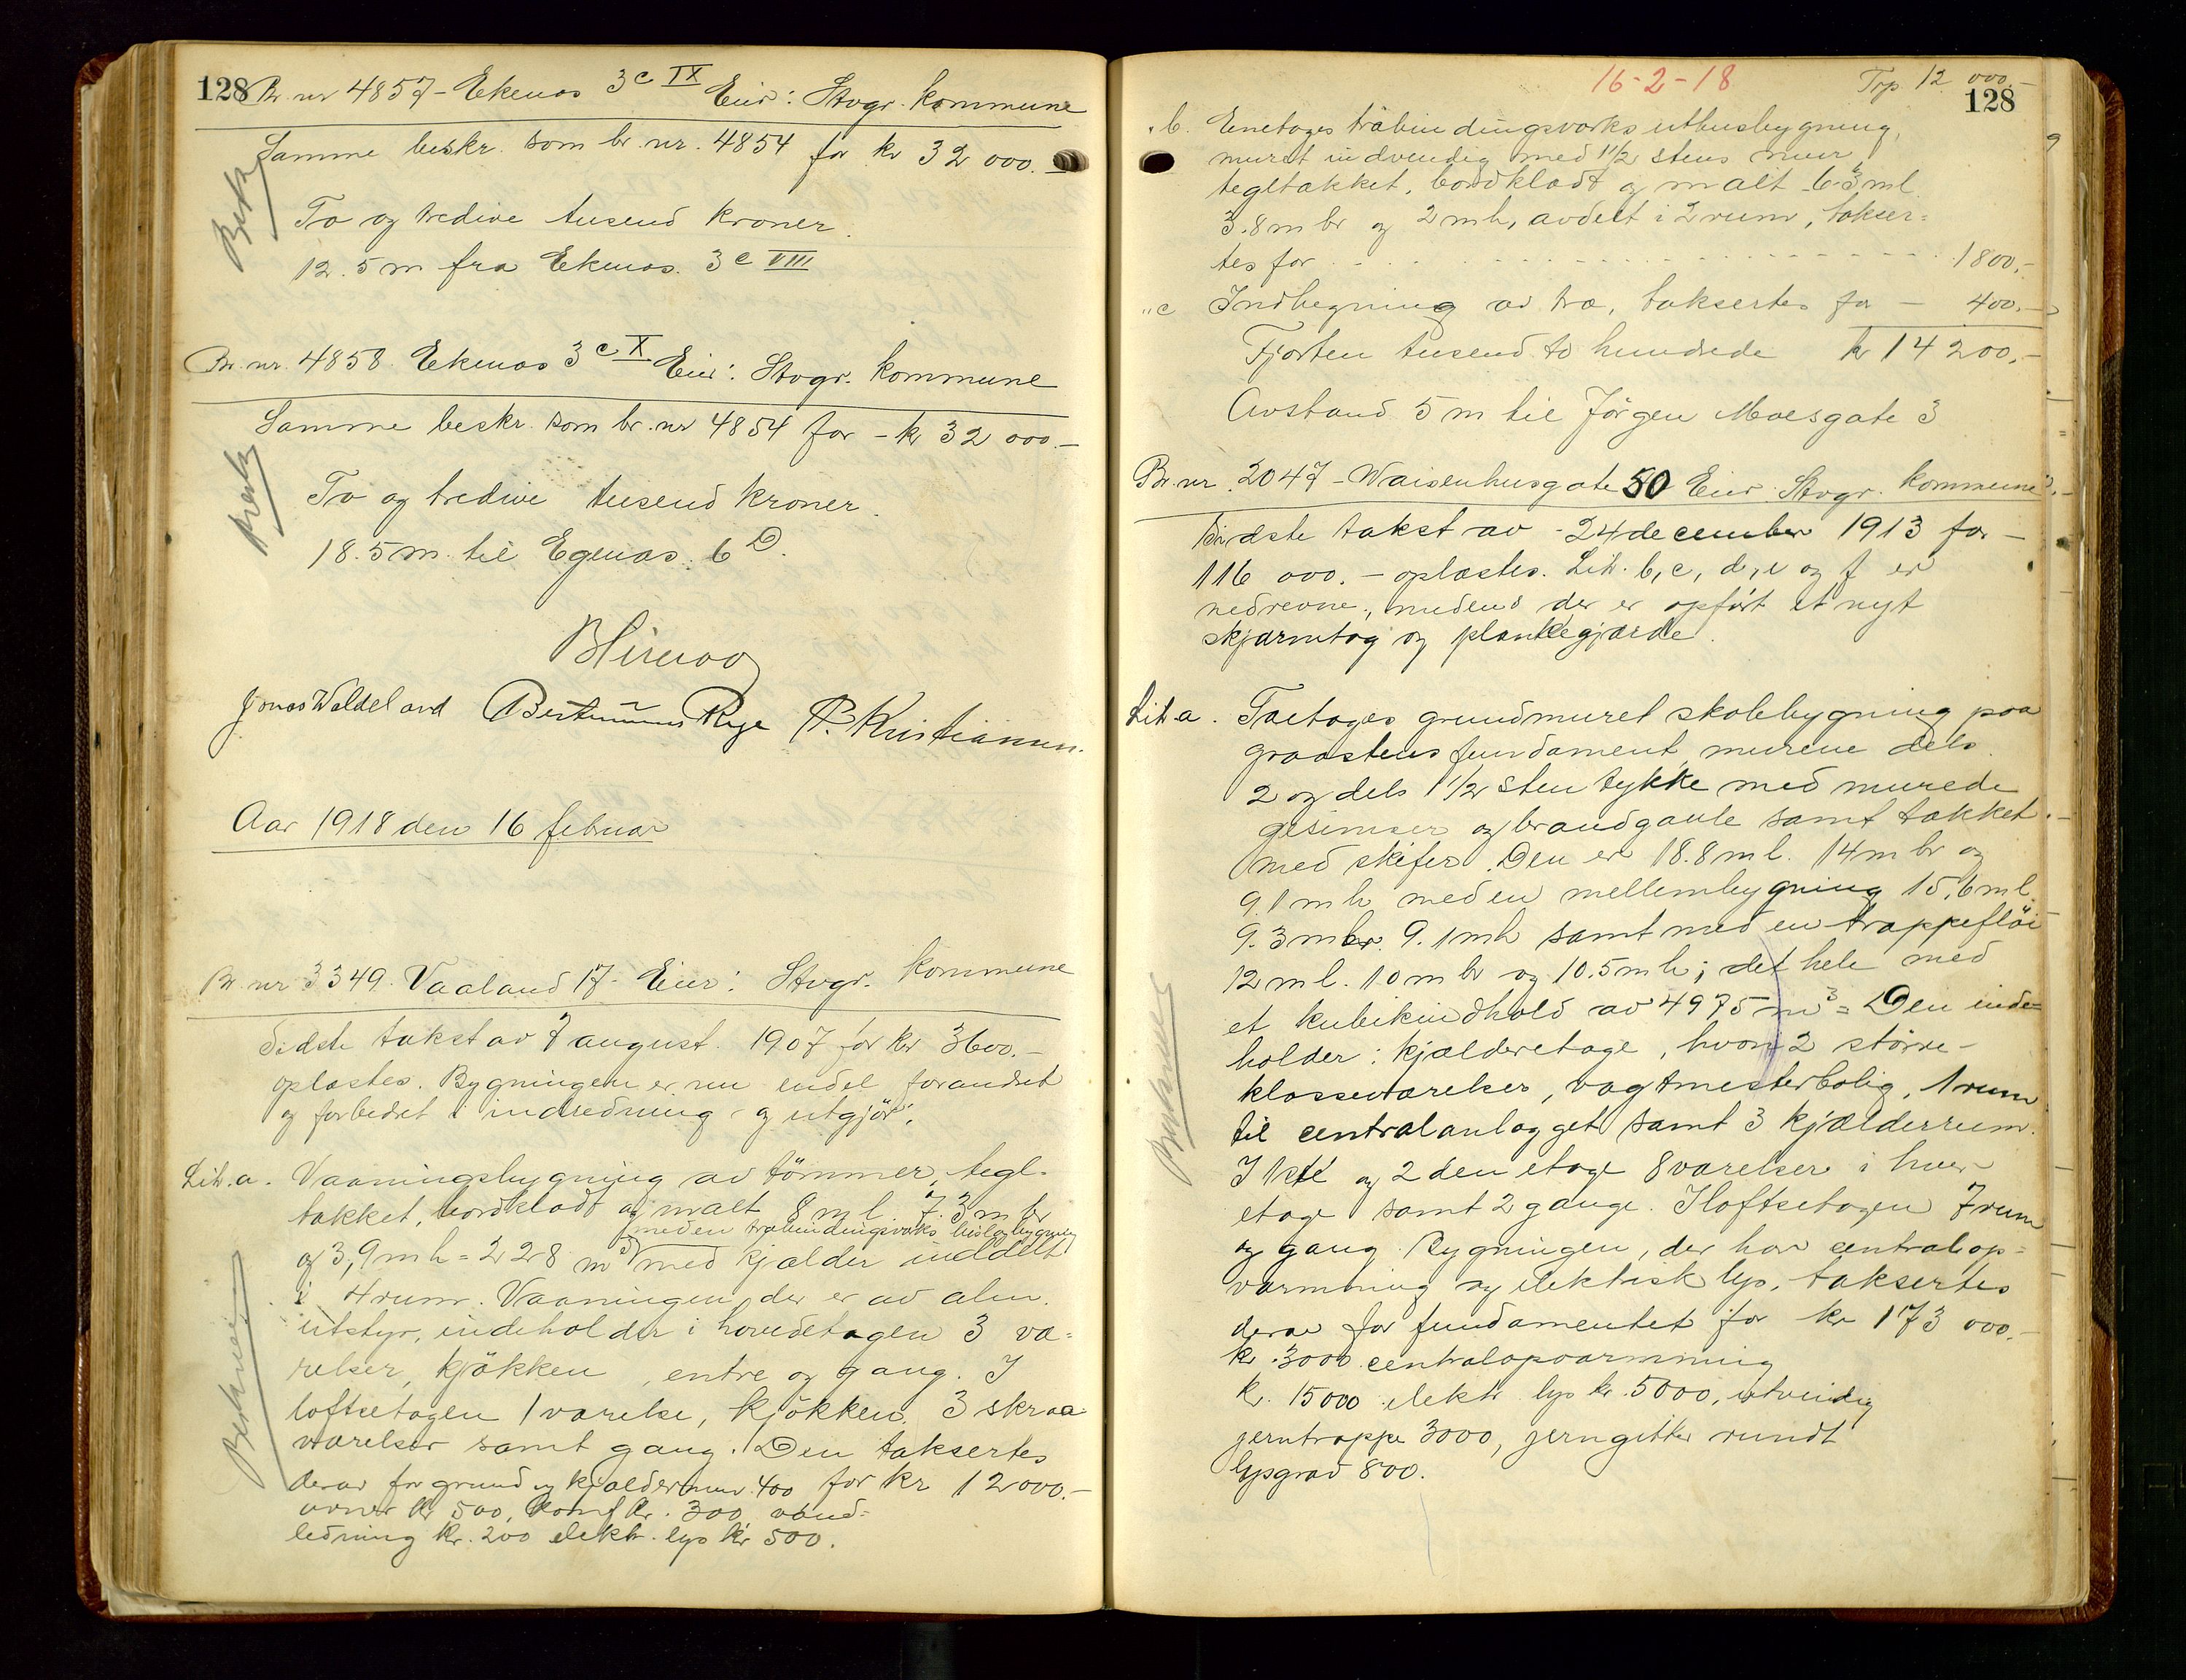 128 Br. nr 4857 - Ekenæs 3c IX Eier: Stvgr. kommune
Samme beskr. som br. nr. 4854 for kr 32 000.-
To og tredive tusend kroner.
12.5 m fra Ekenæs. 3c VIII
Br. nr. 4858. Ekenæs 3c X Eier: Stvgr. kommune
Samme beskr. som br. nr 4854 for - kr 32 000.-
To og tredive tusend kroner.
18.5 m. til Egenæs. 6D.
Jonas Waldeland Rege P. Kristiansen.
Aar 1918 den 16 februar
Br. nr 3349. Vaaland 17. Eier: Stvgr. kommune
Sidste takst av 7 august. 1907 for kr 3600.-
oplæstes. Bygningen er nu endel forandret
og forbedret i indredning og utgjør:
Lit. a. Vaaningsbygning av tömmer, tegl-
tækket, bordklædt og malt 8 m l. 7.3 m br
med en træbindingsværks bislagbygning
og 3,9 m h = 228 m3 med kjælder inddelt
i 4 rum. Vaaningen, der er av alm.
utstyr, indeholder i hovedetagen 3 væ-
relser, kjökken, entre og gang. I
loftsetagen 1 værelse, kjökken. 3 skraa-
værelser samt gang. Den taksertes
derav for grund og kjældermur 400 for kr 12 000.-
ovner kr 500, komf kr. 300, vand-
ledning kr. 200 elektr. lys kr 500.
16-2-18 Trp. 12 000.-
128
" b. Enetages träbindingsværks uthusbygning,
muret indvendig med 1 1/2 stens mur,
tegltækket, bordklædt og malt 6.3 m l
3.8 m br og 2 m h, avdelt i 2 rum, takser-
tes for 1800.-
" c Indhegning av træ, taksertes for - 400.-
Fjorten tusend to hundrede kr 14 200.-
Avstand 5 m til Jörgen Moesgate 3
Br. nr. 2047 - Waisenhusgate 50 Eier Stvgr. kommune
Sidste takst av - 24 december 1913 for -
116 000.- oplæstes. Lit. b, c, d, e og f er
nedrevne, medens der er opført et nyt
skjærmtag og plankegjærde.
Lit. a. Toetages grundmuret skolebygning paa
graastens fundament, murene dels
2 og dels 1 1/2 sten tykke med murede
gesimser og brandgavle samt tækket
med skifer. Den er 18.8 m l. 14 m br og
9.1 m h, med en mellembygning 15,6 m l.
9.3 m br. 9.1 m h samt med en trappeflöi
12 m l. 10 m br og 10.5 m h; det hele med
et kubikindhold av 4975 m3 = Den inde-
holder: kjælderetage, hvori 2 større
klasseværelser, vagtmesterbolig, 1 rum
til centralanlægget samt 3 kjælderrum.
I 1ste og 2den etage 8 værelser i hver
etage samt 2 gange. I loftsetagen 7 rum
og gang. Bygningen, der har centralop-
varmning og elektrisk lys, taksertes
derav for fundamentet for kr 173 000.-
kr. 3000 centralopvarmning
kr. 15000 elektr. lys kr. 5000, utvendig
jerntrappe 3000, jerngitter rundt
lysgrav 800.